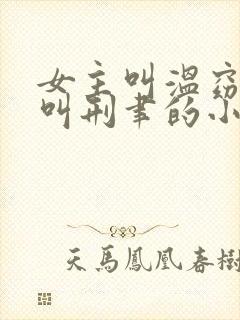 女主叫温窈
叫荆聿的小
天馬鳳凰春樹